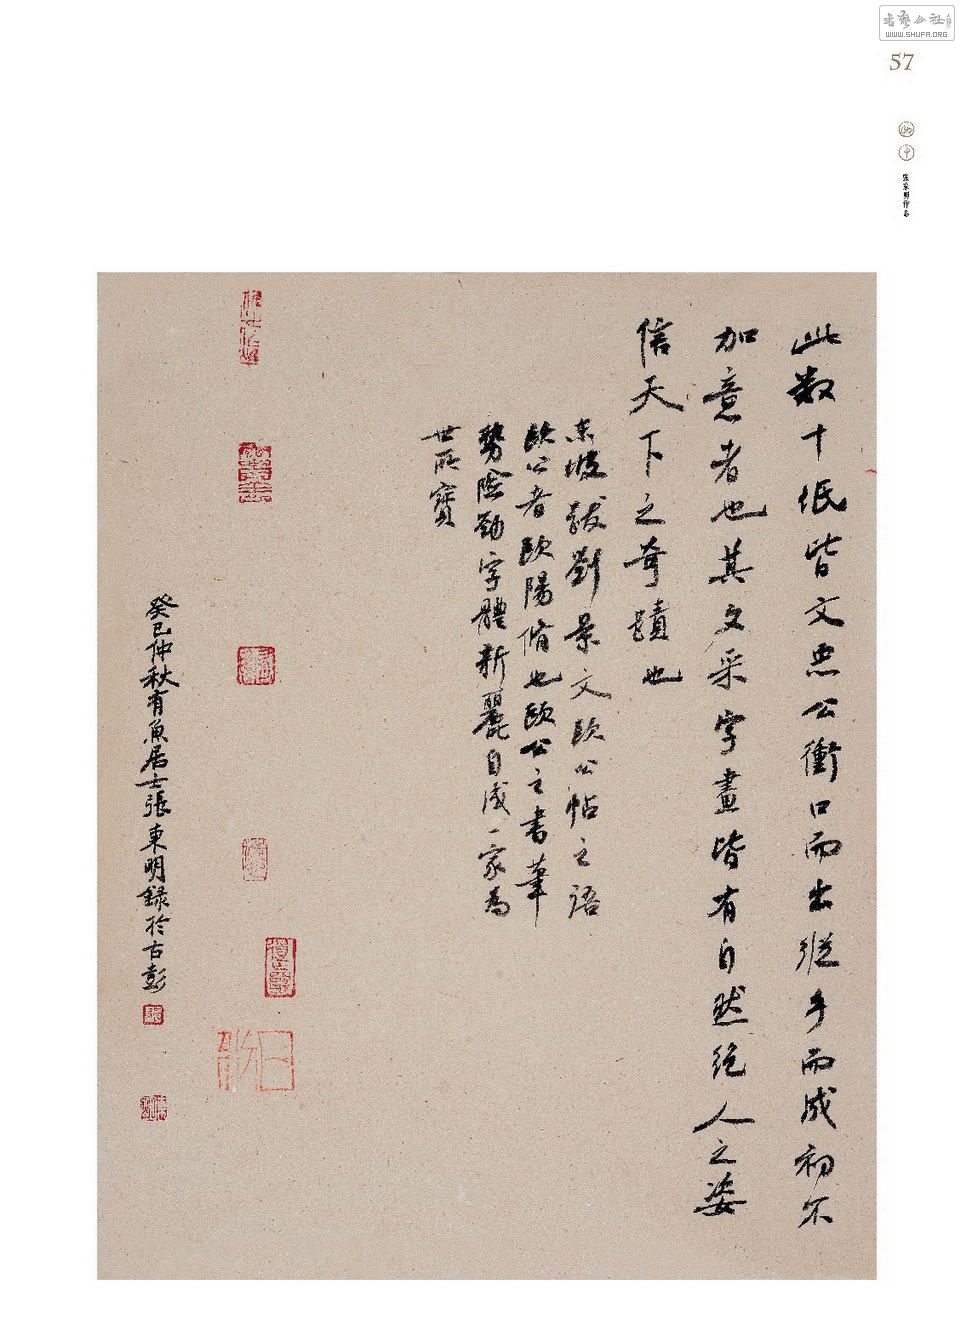 書藝公社
WWW.SHUFA.ORG
57
张东明作品
此数十纸皆文忠公衝口而出縱手而成初不
加意者也其文采字畫皆有自然絕人之姿
信天下之奇蹟也
東坡跋劉景文歐公帖之語
歐公者歐陽脩也歐公之書筆
勢險勁字體新麗自成一家為
世所寶
癸巳仲秋有魚居士張東明録於古彭